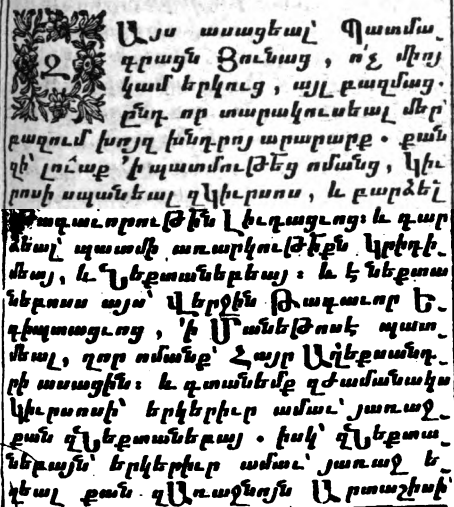 Զ Այս ասացեալ՝ Պատմա
գրացն Յունաց , ո՛չ միոյ
կամ երկուց , այլ բազմաց.
ընդ որ տարակուսեալ մեր՝
բազում խոյզ խնդրոյ արարաք . քան
զի՝ լուաք ՛ի պատմութեց ոմանց , Կիւ
րոսի սպանեալ զԿիւրսոս , և բարձել
Թագաւորութին Լիւդացւոց: և դար
ձեալ՝ պատմի առարկութիքն Կրիդի
մեայ , և Նեքտանեբեայ : և է Նեքտա
նեբոսս այս՝ Վերջին Թագաւոր Ե
գիպտացւոց , ՛ի Մանեթոսէ պատ
մեալ, զոր ոմանք՝ Հայր Աղեքսանդ
րի ասացին: և գտանեմք զժամանակս
Կիւրսոսի՝ երկերիւր ամաւ՝ յառաջ
քան զՆեքտանեբայ . իսկ՝ զՆեքտա
նեբայն՝ երկերիւր ամաւ՝ յառաջ ե
ղեալ քան զԱռաջնոյն Արտաշիսի՝